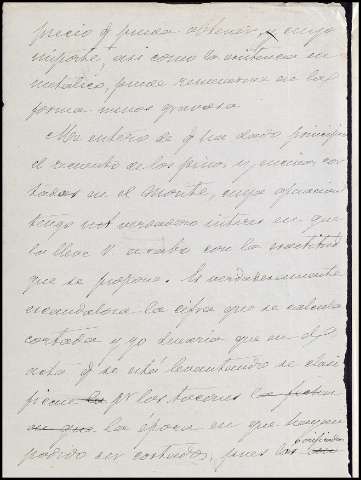 precio q. pueda obtener, y cuyo
importe, asi como la existencia en
metálico, puede remesarse en la
forma menos gravosa
Me entero de q. ha dado principio
el recuento de los pinos y encinas cor
tados en el Monte, cuya operacion
tengo verdadero interes en que
la lleve V. a cabo con la exactitud
que se propone. Es verdaderamente
escandalosa la cifra que se calcula
cortada y yo desearia que en el
acta q. se está levantando se clasi
fiquen pr. los tocones
la época en que hayan
podido ser cortados, pues las